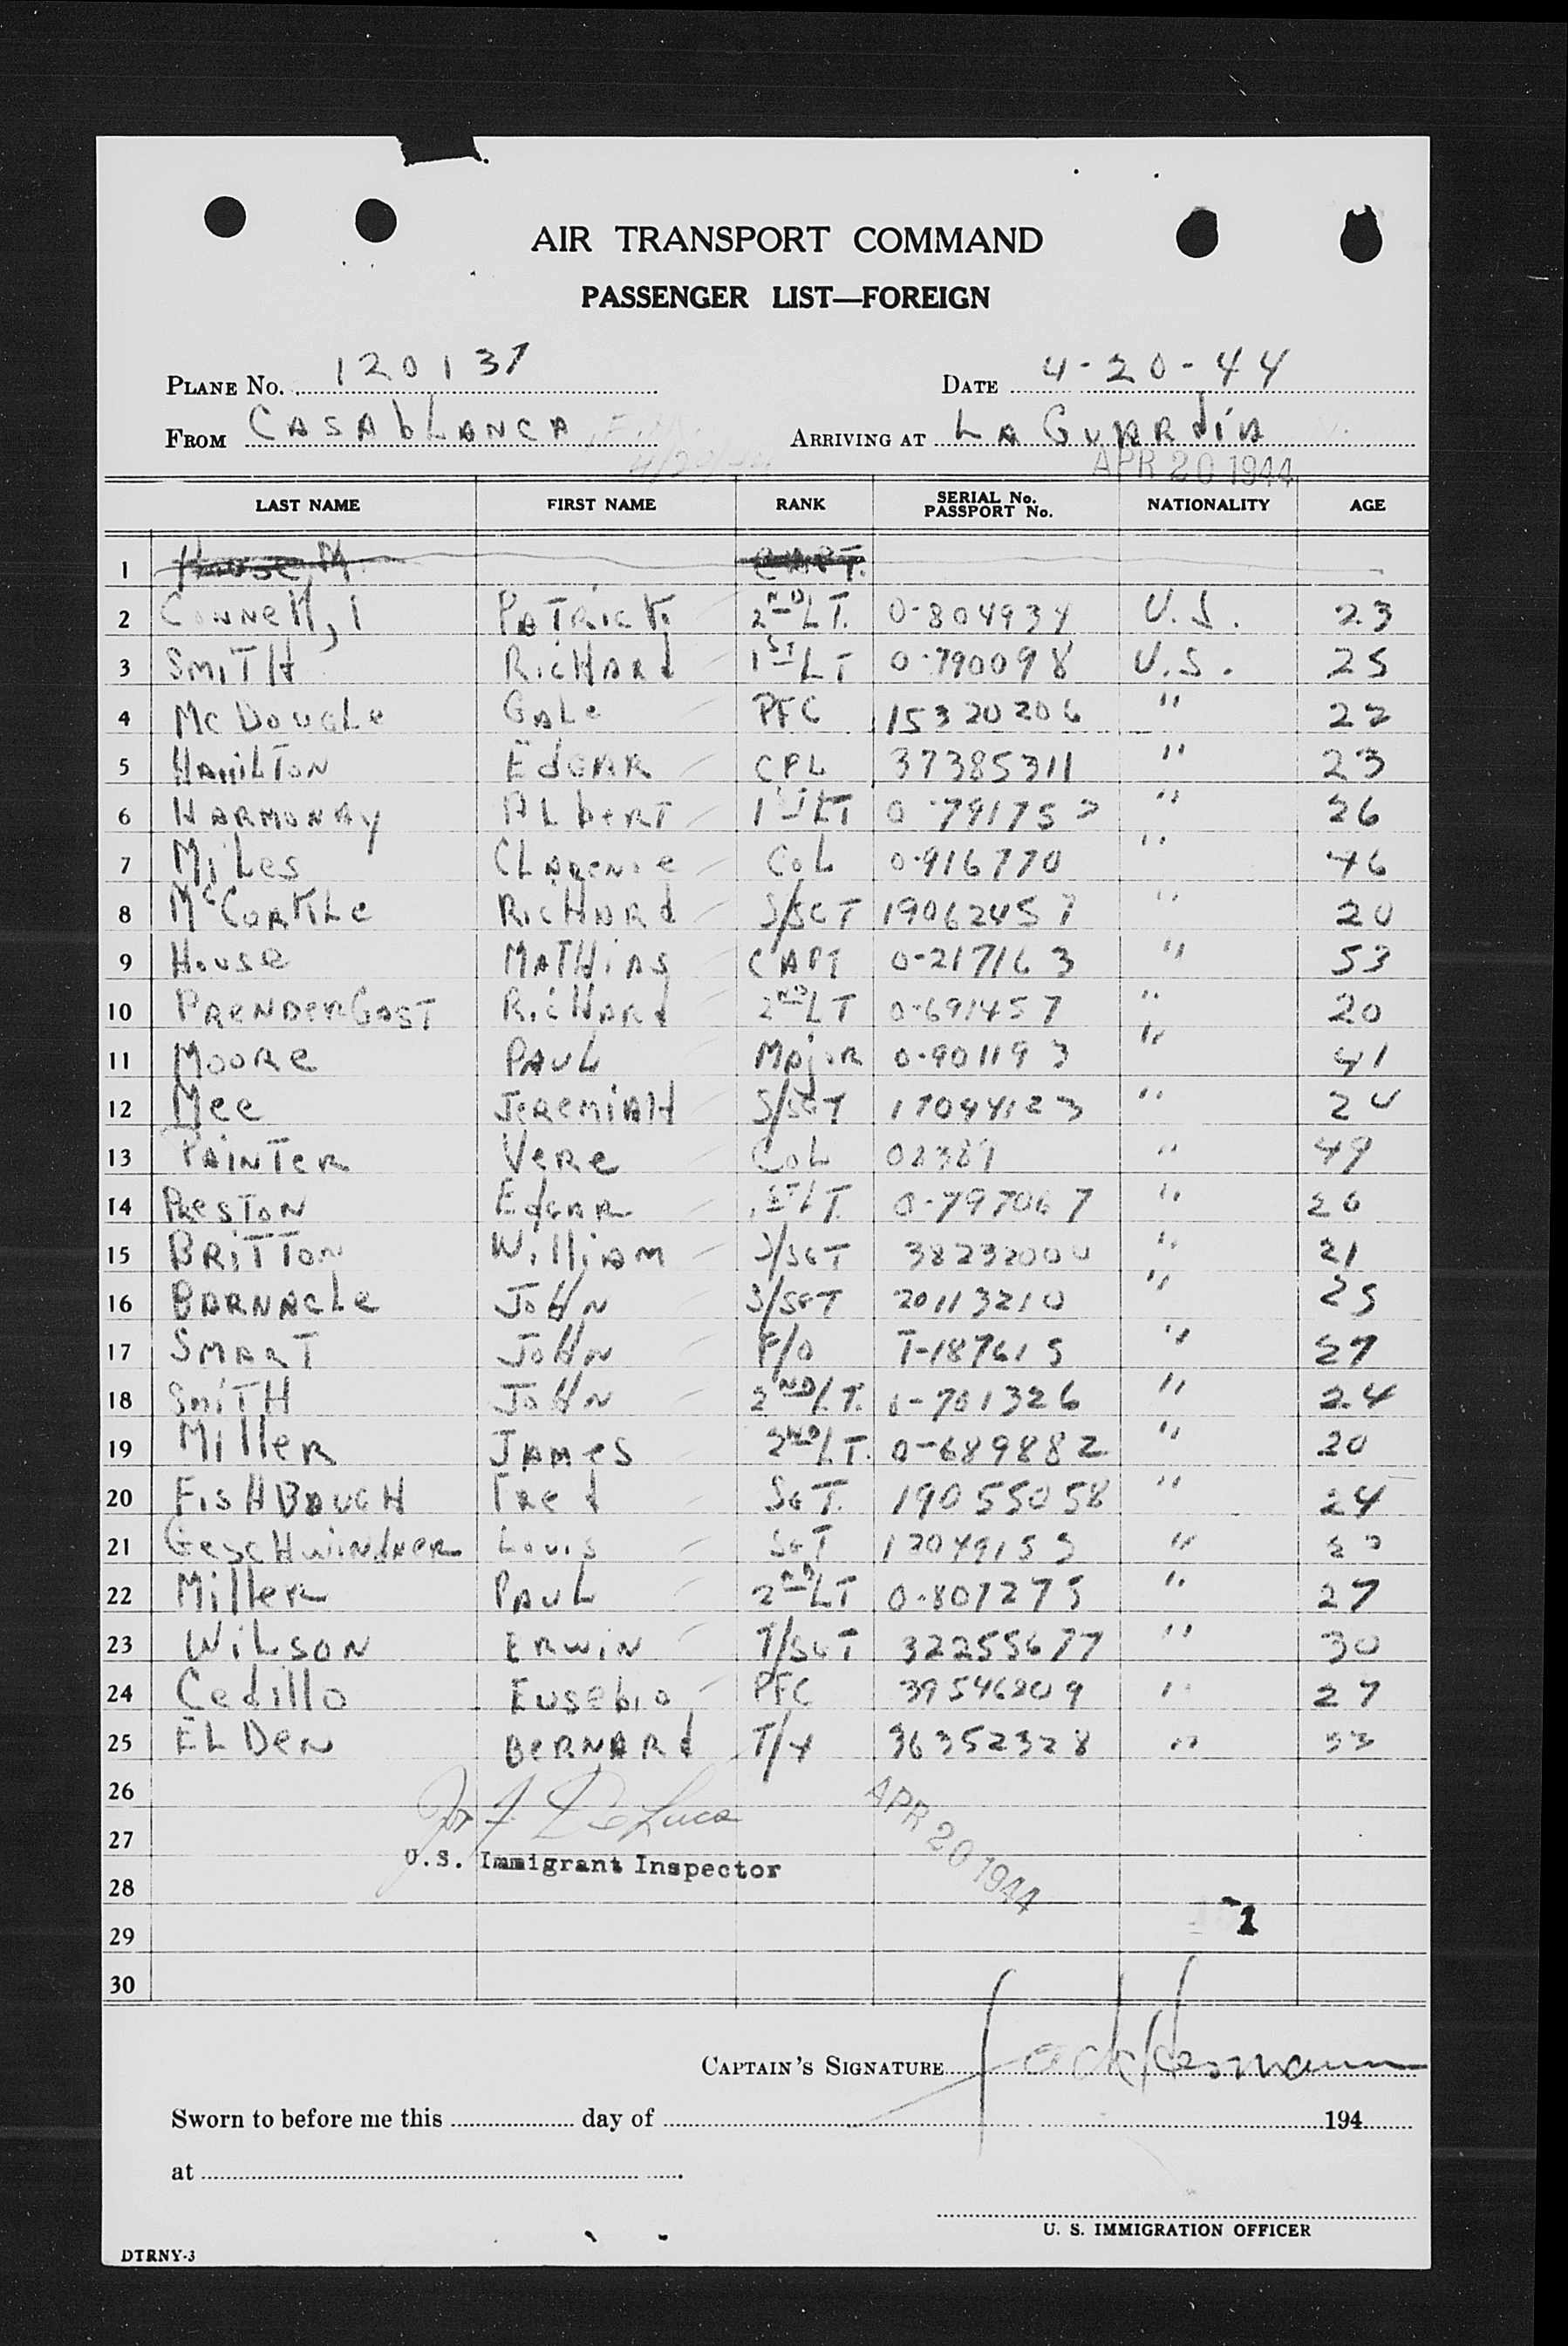 AIR TRANSPORT COMMAND
PASSENGER LIST—FOREIGN
PLANE No. 120137 DATE 4-20-44
FROM CASAbLANCA ARRIVING AT LA GUARdiA
APR 20 1944
LAST NAME FIRST NAME RANK SERIAL No. PASSPORT No. NATIONALITY AGE
1 House, M. CAPT.
2 PATRICK 2ND LT. 0-804934 U.S. 23
3 SMITH RICHARd 1ST LT 0-790098 U.S. 25
4 Mc DOUGLe GALe PFC 15320206 " 22
5 HAMILTON EdGAR CPL 37385311 " 23
6 HARMONAY ALbERT 1 LT " 26
7 MiLes CLARENCe COL 0-916770 " 46
8 RICHARd S/SGT 19062457 " 20
9 House MATHIAS CAPT 0-217163 " 53
10 PRENDERGAST RICHARd 2ND LT 0-691457 " 20
11 MOORe PAUL MAjoR 0-901193 " 41
12 Mee JeRemiAH S/SGT 17094123 "
13 PAINTeR VeRe COL " 49
14 PReSTON EdGAR 1ST LT. 0-797067 " 26
15 BRITTON WilliAM S/SGT 38232000 " 21
16 BARNACLe JOHN S/SGT 20113210 " 25
17 SMART JOHN F/O T-187615 " 27
18 SMITH JOHN 2ND LT. 0-701326 " 24
19 MilleR JAMeS 2ND LT. 0-689882 " 20
20 FISHBAUGH FRed SGT. 19055058 " 24
21 GeSCHwiNdNeR Louis SGT "
22 MilleR PAUL 2ND LT 0-801275 " 27
23 WILSON ERWIN T/SGT 32255677 " 30
24 Cedillo Eusebio PFC 39546809 " 27
25 ELDeN BeRNARd T/4 36352328 "
26
27
U.S. Immigrant Inspector
APR 20 1944
28
29 1
30
CAPTAIN'S SIGNATURE
Sworn to before me this day of 194
at
U. S. IMMIGRATION OFFICER
DTRNY-3